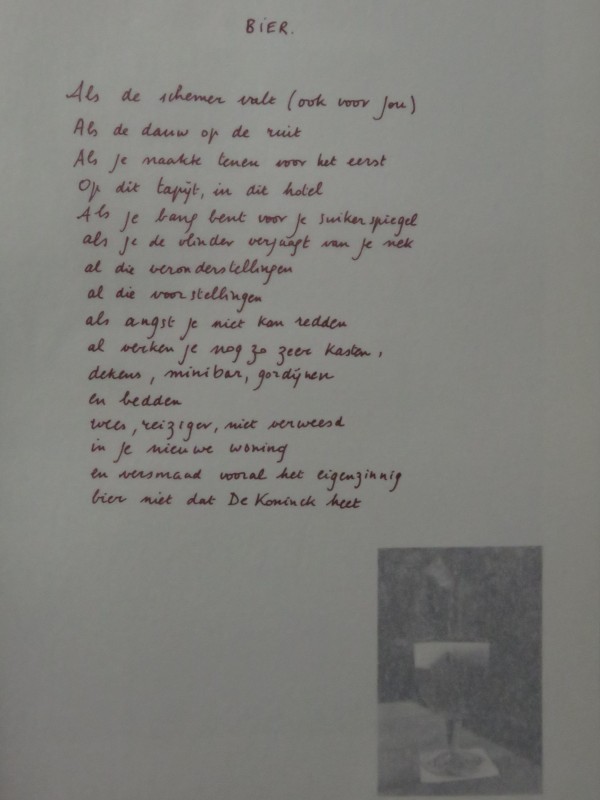 BIER.
Als de schemer valt (ook voor jou)
Als de dauw op de ruit
Als je naakte tenen voor het eerst
Op dit tapijt, in dit hotel
Als je bang bent voor je suikerspiegel
als je de vlinder verjaagt van je nek
al die veronderstellingen
al die voorstellingen
als angst je niet kan redden
al verken je nog zo zeer kasten,
dekens, minibar, gordijnen
en bedden
wees, reiziger, niet verweesd
in je nieuwe woning
en versmaad vooral het eigenzinnig
bier niet dat De Koninck heet